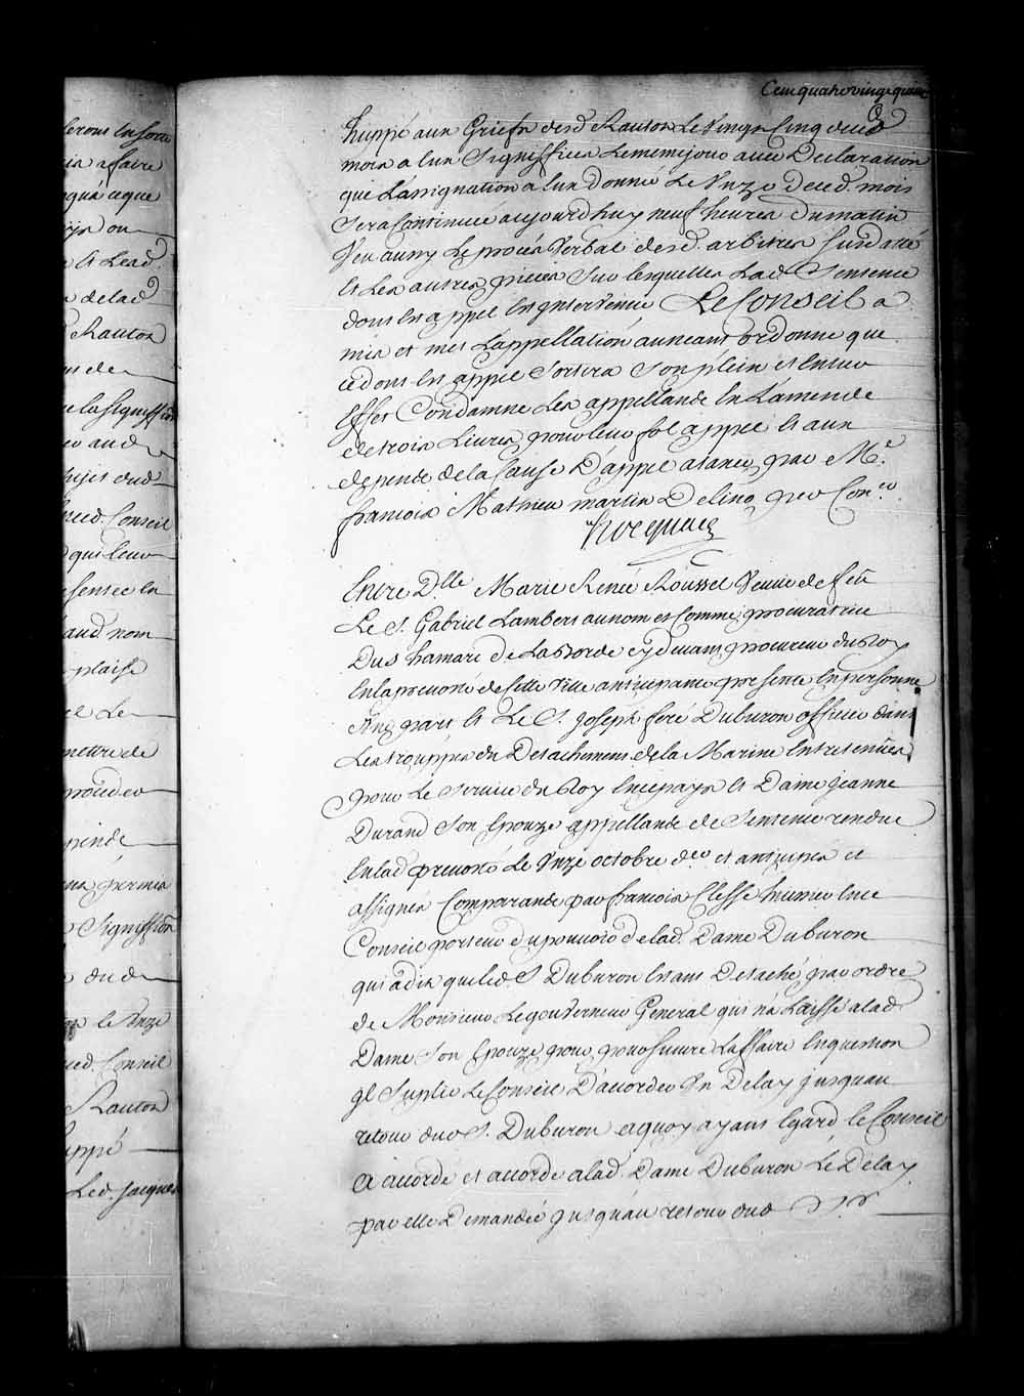 Cent quatrevingt quinze
huppé aux Griefs desd. Rautox Le vingt Cinq dud.
mois a lux Signiffiéz Lememejour avec Declaration
que L'assignation a lux donné Le Unze de ced. mois
Sera Continuée aujourd'huy neuf heures du matin
Veu aussy Le procés Verbal desd. arbitres Susdatté
Et Les autres pieces Sur lesquelles Lad. Sentence
dont Est appel Est Intervenue Le Conseil a
mis et met L'appellation au neant ordonne que
ce dont Est appel Sortira Son plein et Entier
Effet Condamne Les appellants En L'amende
de trois Livres pour leur fol appel Et aux
depends de la Cause D'appel ataxer par Me.
francois Mathieu martin Delino per Conr.
Hocquart
Entre Dlle Marie René Roussel Veuve de feu
Le S. Gabriel Lambert au nom et Comme procuratrice
Du S. hamare de Laborde cydevant procureur du Roy
En la prevosté de Cette Ville anticipante presente En personne
d'une part Et Le S. Joseph feré Duburon officier dans
Les trouppes du Detachement de la Marine Entretenües
pour Le Service du Roy En ce pays Et Dame Jeanne
Durand Son Epouze appellants de Sentence rendue
En lad. prevosté Le Unze octobre der et anticipés et
assignés Comparants par francois Clesse huissier En ce
Conseil porteur du pouvoir de lad. Dame Duburon
qui a dit que led. S. Duburon Etant Detaché par ordre
de Monsieur Le gouverneur General qui n'a Laissé a lad.
Dame Son Epouze pour poursuivre L'affaire En question
Il Suplie Le Conseil D'accorder Un Delay jusqu'au
retour dud. S. Duburon aquoy ayant Egard le Conseil
a accordé et accorde a lad. Dame Duburon Le Delay
par elle Demandée jusqu'au retour dud. S.
erons
affaire
aque
ou
Et Lead.
de lad.
Rautox
de
la signiffion
aud.
sujet dud.
ced. Conseil
qui leur
sentce En
aud. nom
plaise
Le
mettre de
permis
Signiffion
du d
le Unze
ced. Conseil
Rautox
huppé
Led. Jacques